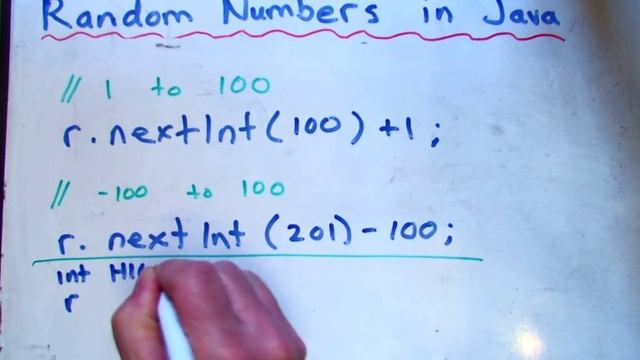 Random Numbers in Java
// 1 to 100
r.nextInt(100)+1;
// -100 to 100
r. nextInt (201)-100;
int
r